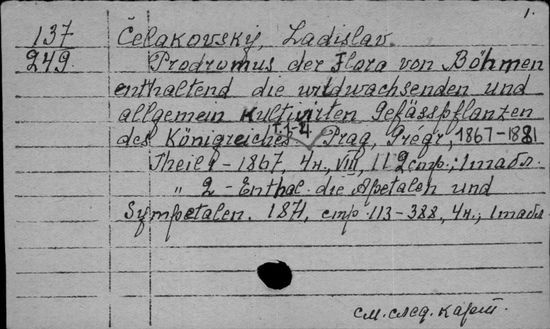 1.
137 Čelakovský, Ladislav.
249 Prodromus der Flora von Böhmen
enthaltend die wildwachsenden und
allgemein kultivirten Gefässpflanzen
des Königreiches T. 1-4 Prag, Grégr, 1867-1881
Theil 1 - 1867, 4н., VIII, 112 стр.; 1 табл.
" 2 - Enthal. die Apetalen und
Sympetalen. 1871, стр. 113-388, 4н.; 1 табл
см. след. карт.